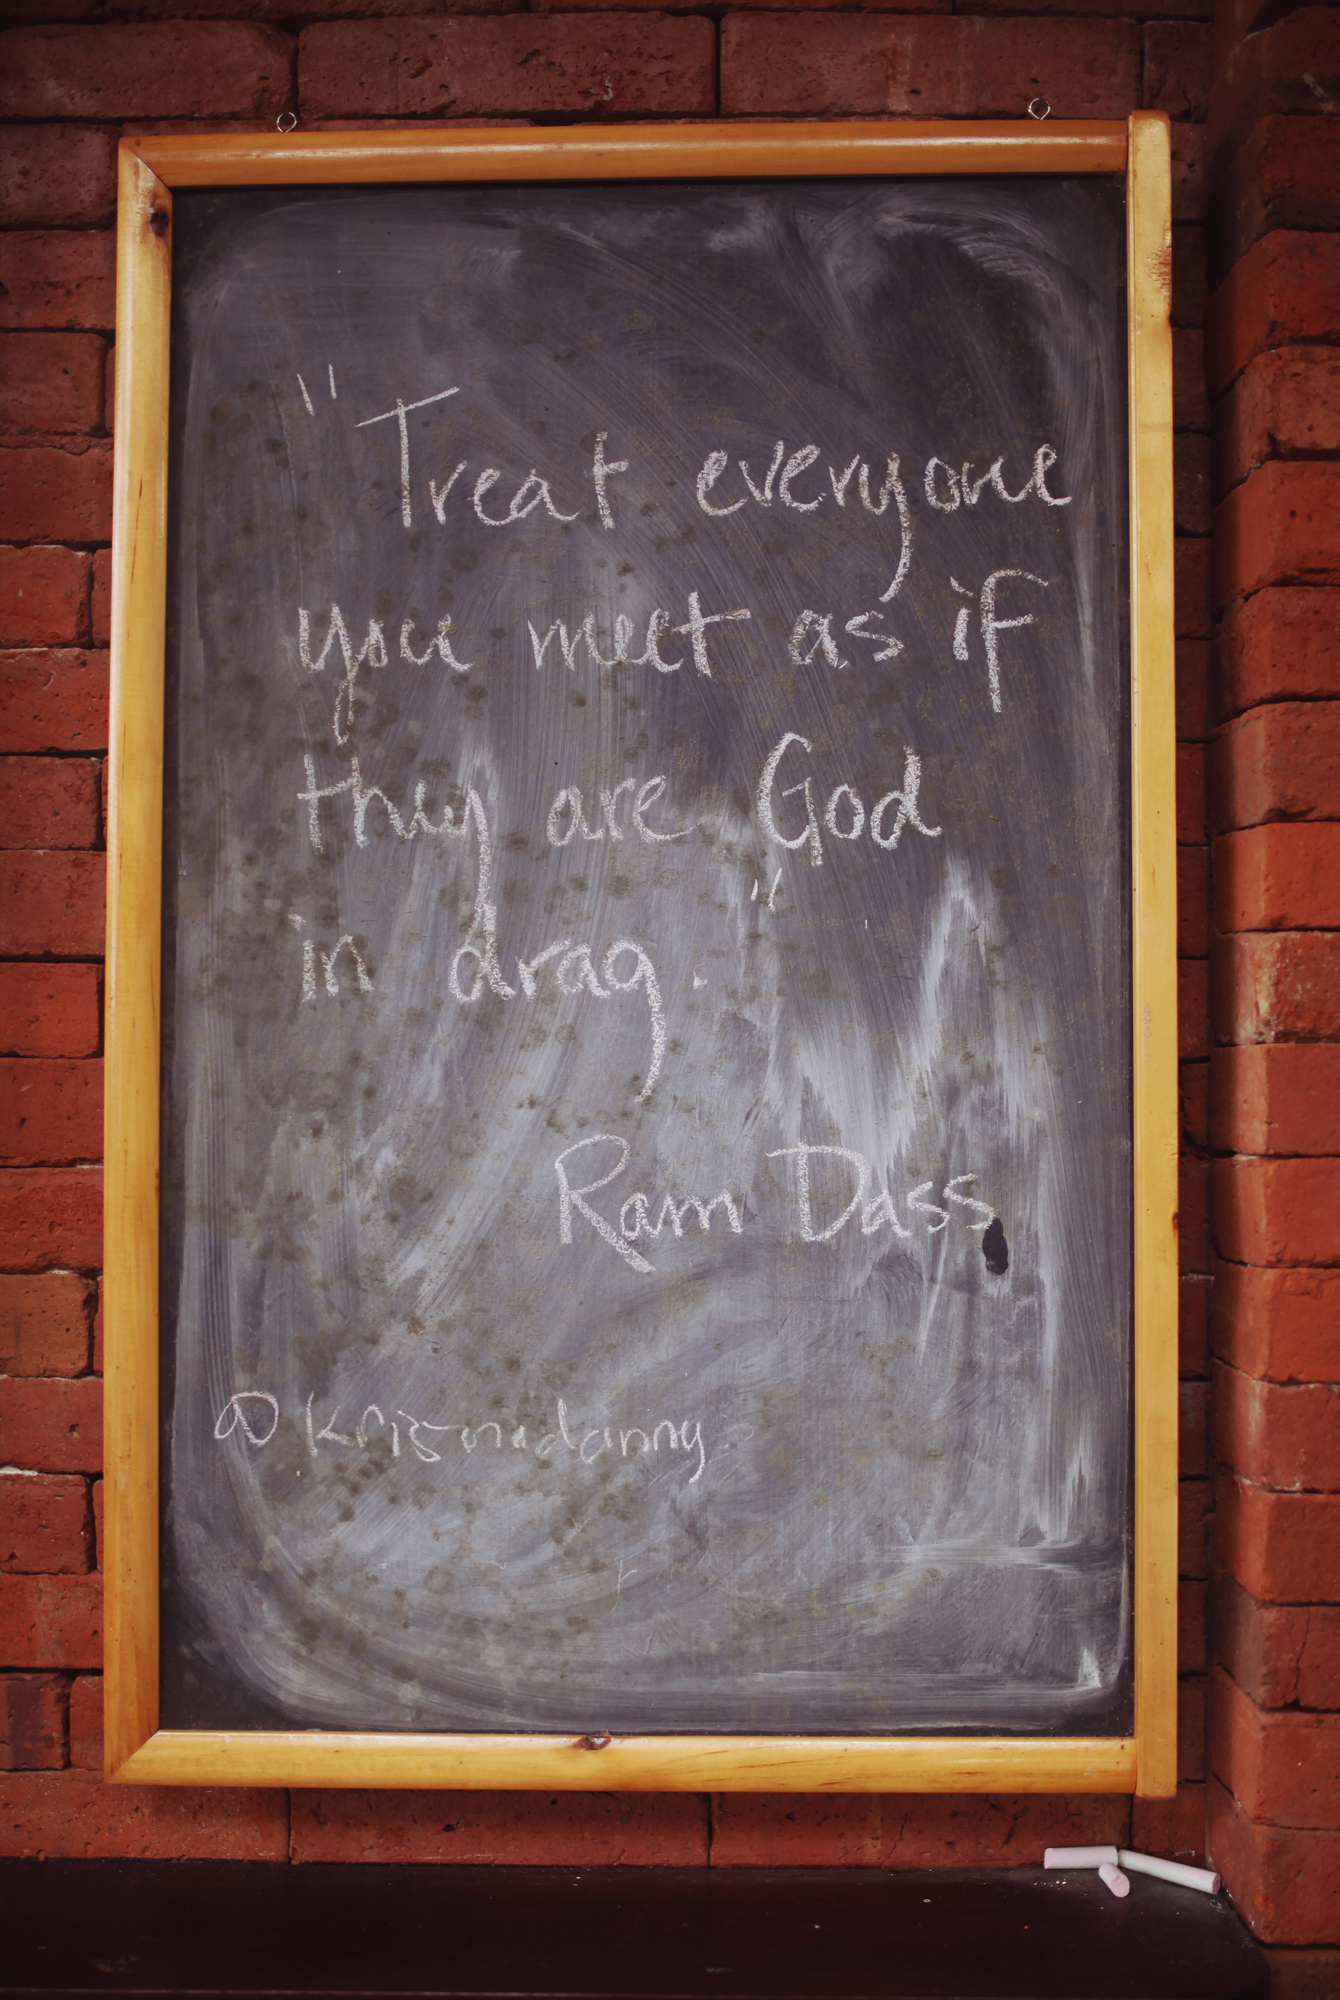 "Treat everyone
you meet as if
they are God
in drag."
Ram Dass
@krisnadanny